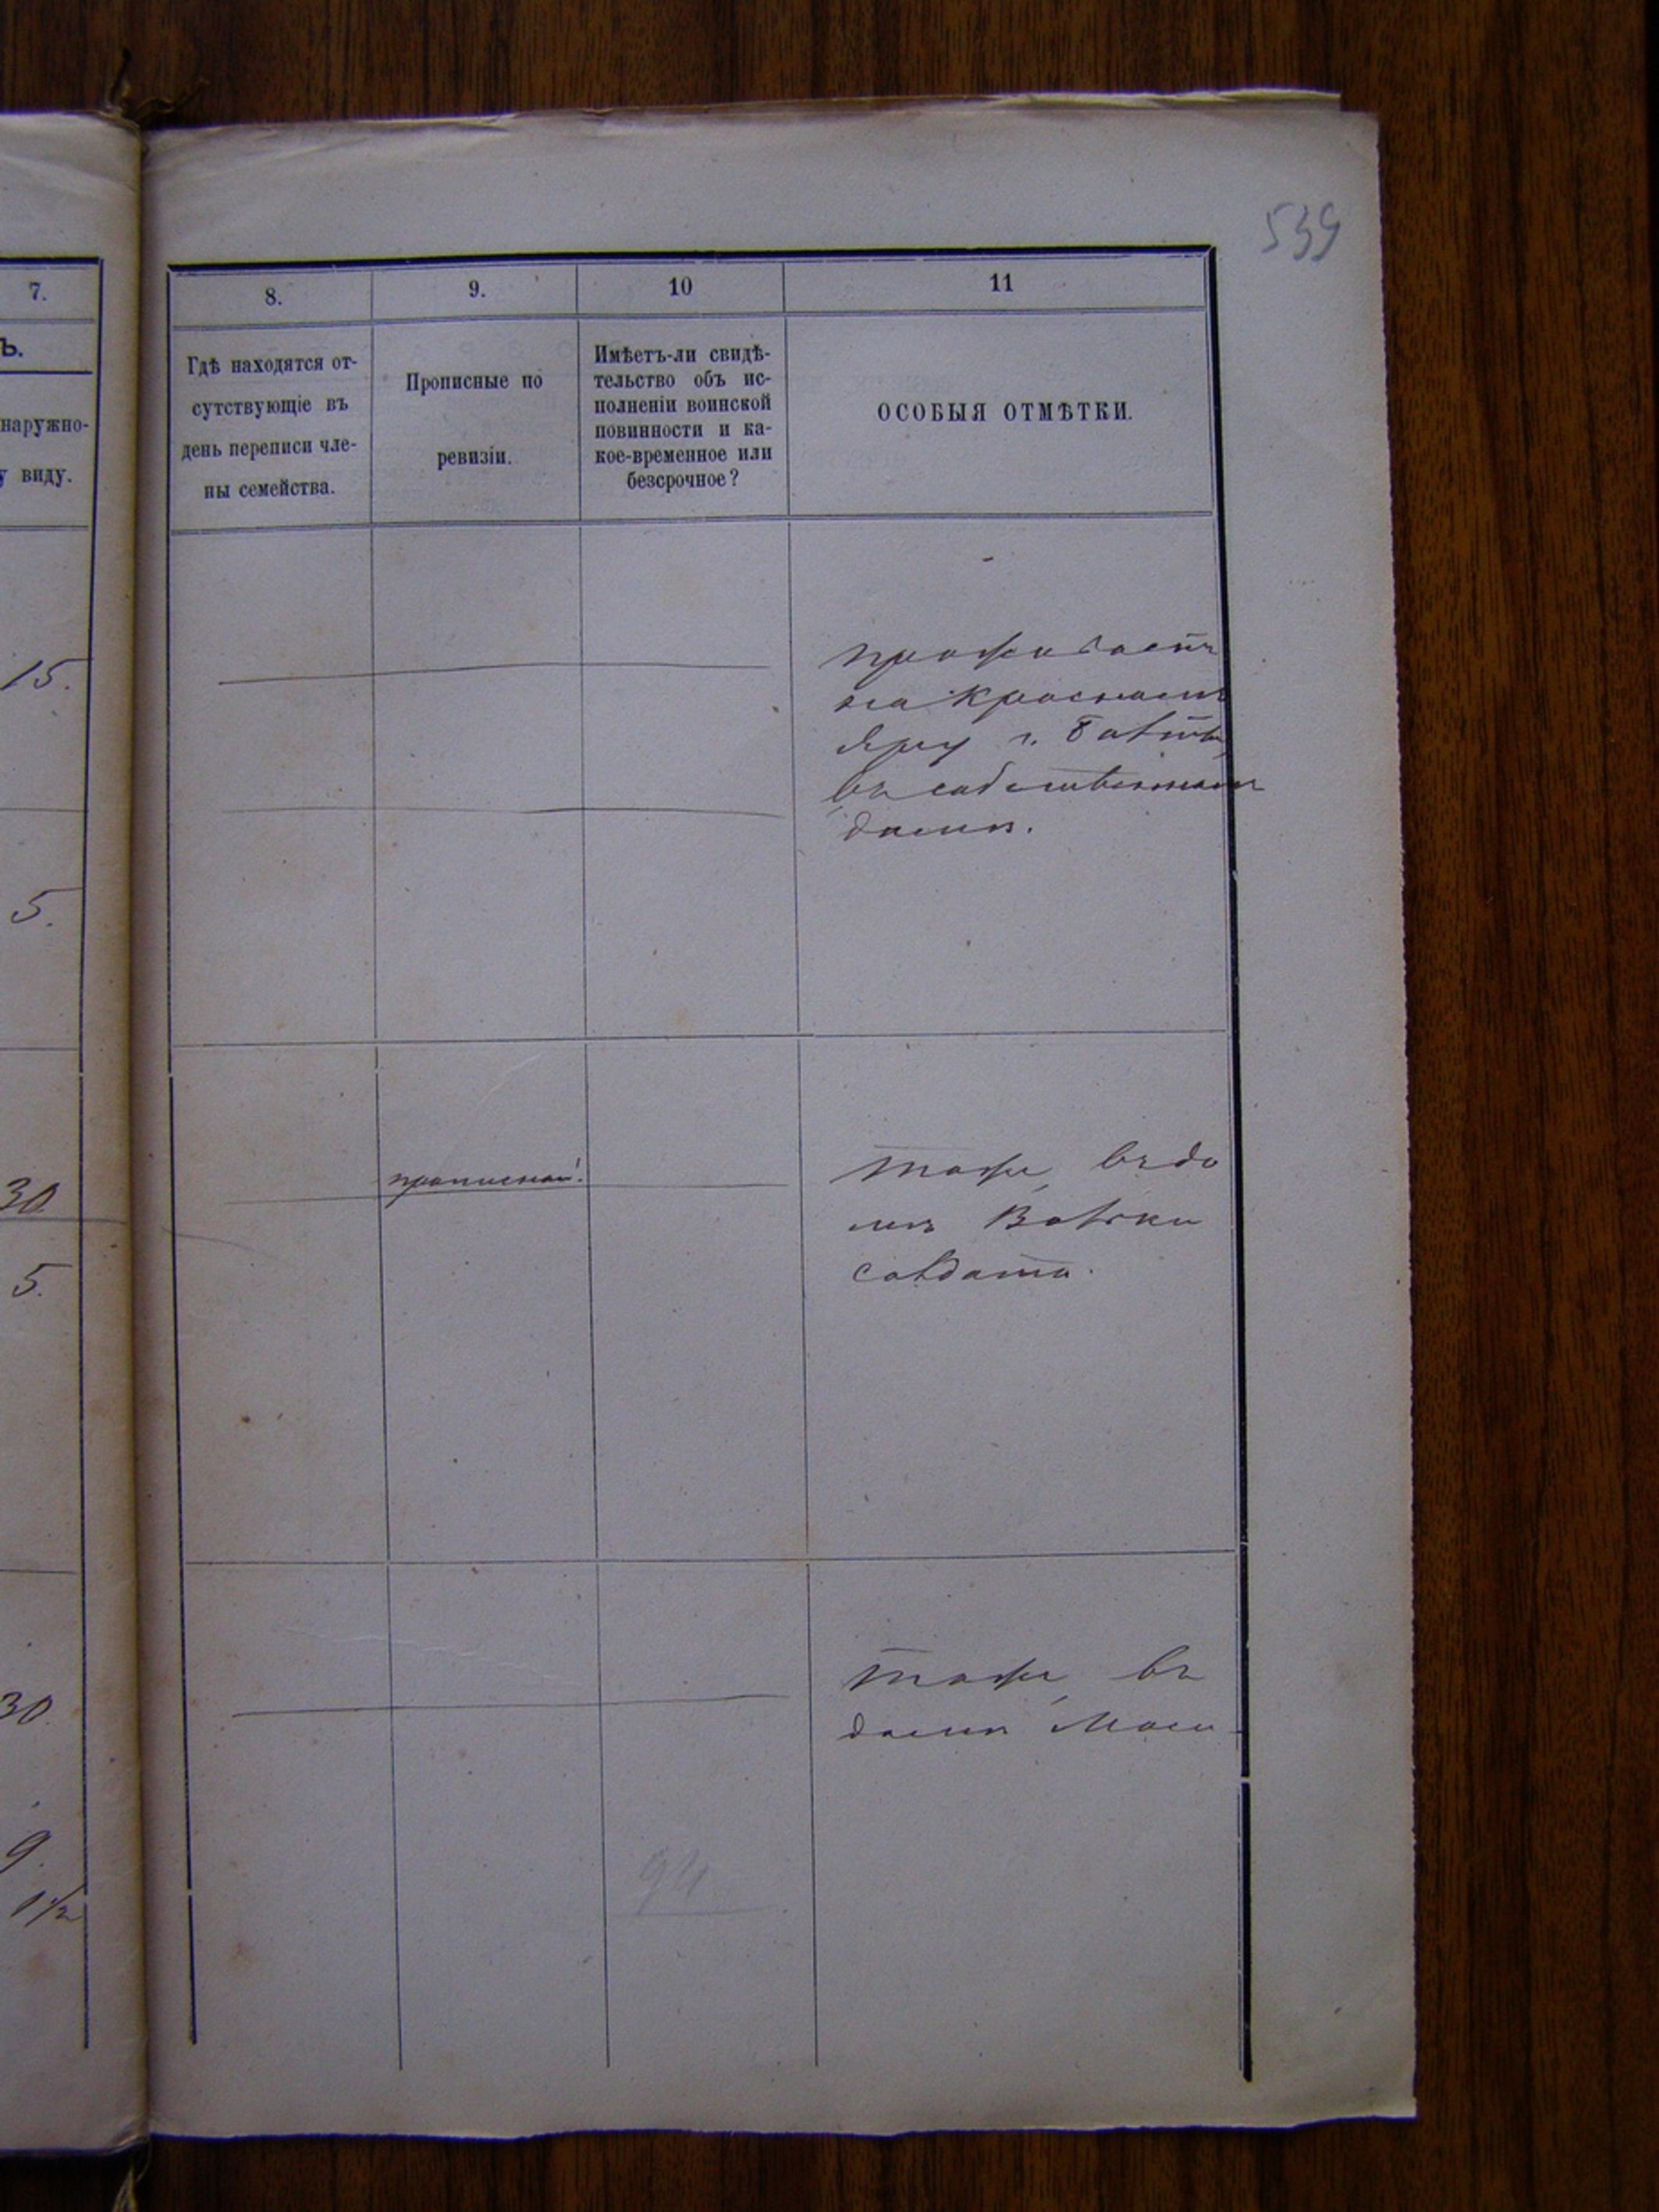 539
7.
8.
9.
10
11
Ъ.
наружно-
у виду.
Гдѣ находятся от-
сутствующіе въ
день переписи чле-
ны семейства.
Прописные по
ревизіи.
Имѣетъ-ли свидѣ-
тельство объ ис-
полненіи воинской
повинности и ка-
кое-временное или
безсрочное?
ОСОБЫЯ ОТМѢТКИ.
15.
проживаетъ
на Красномъ
Яру г. Балты
въ собственномъ
домѣ.
5.
30
прописной
тоже, въ до
мѣ
солдата.
5.
30.
тоже, въ
домѣ
9.
1 1/2
94